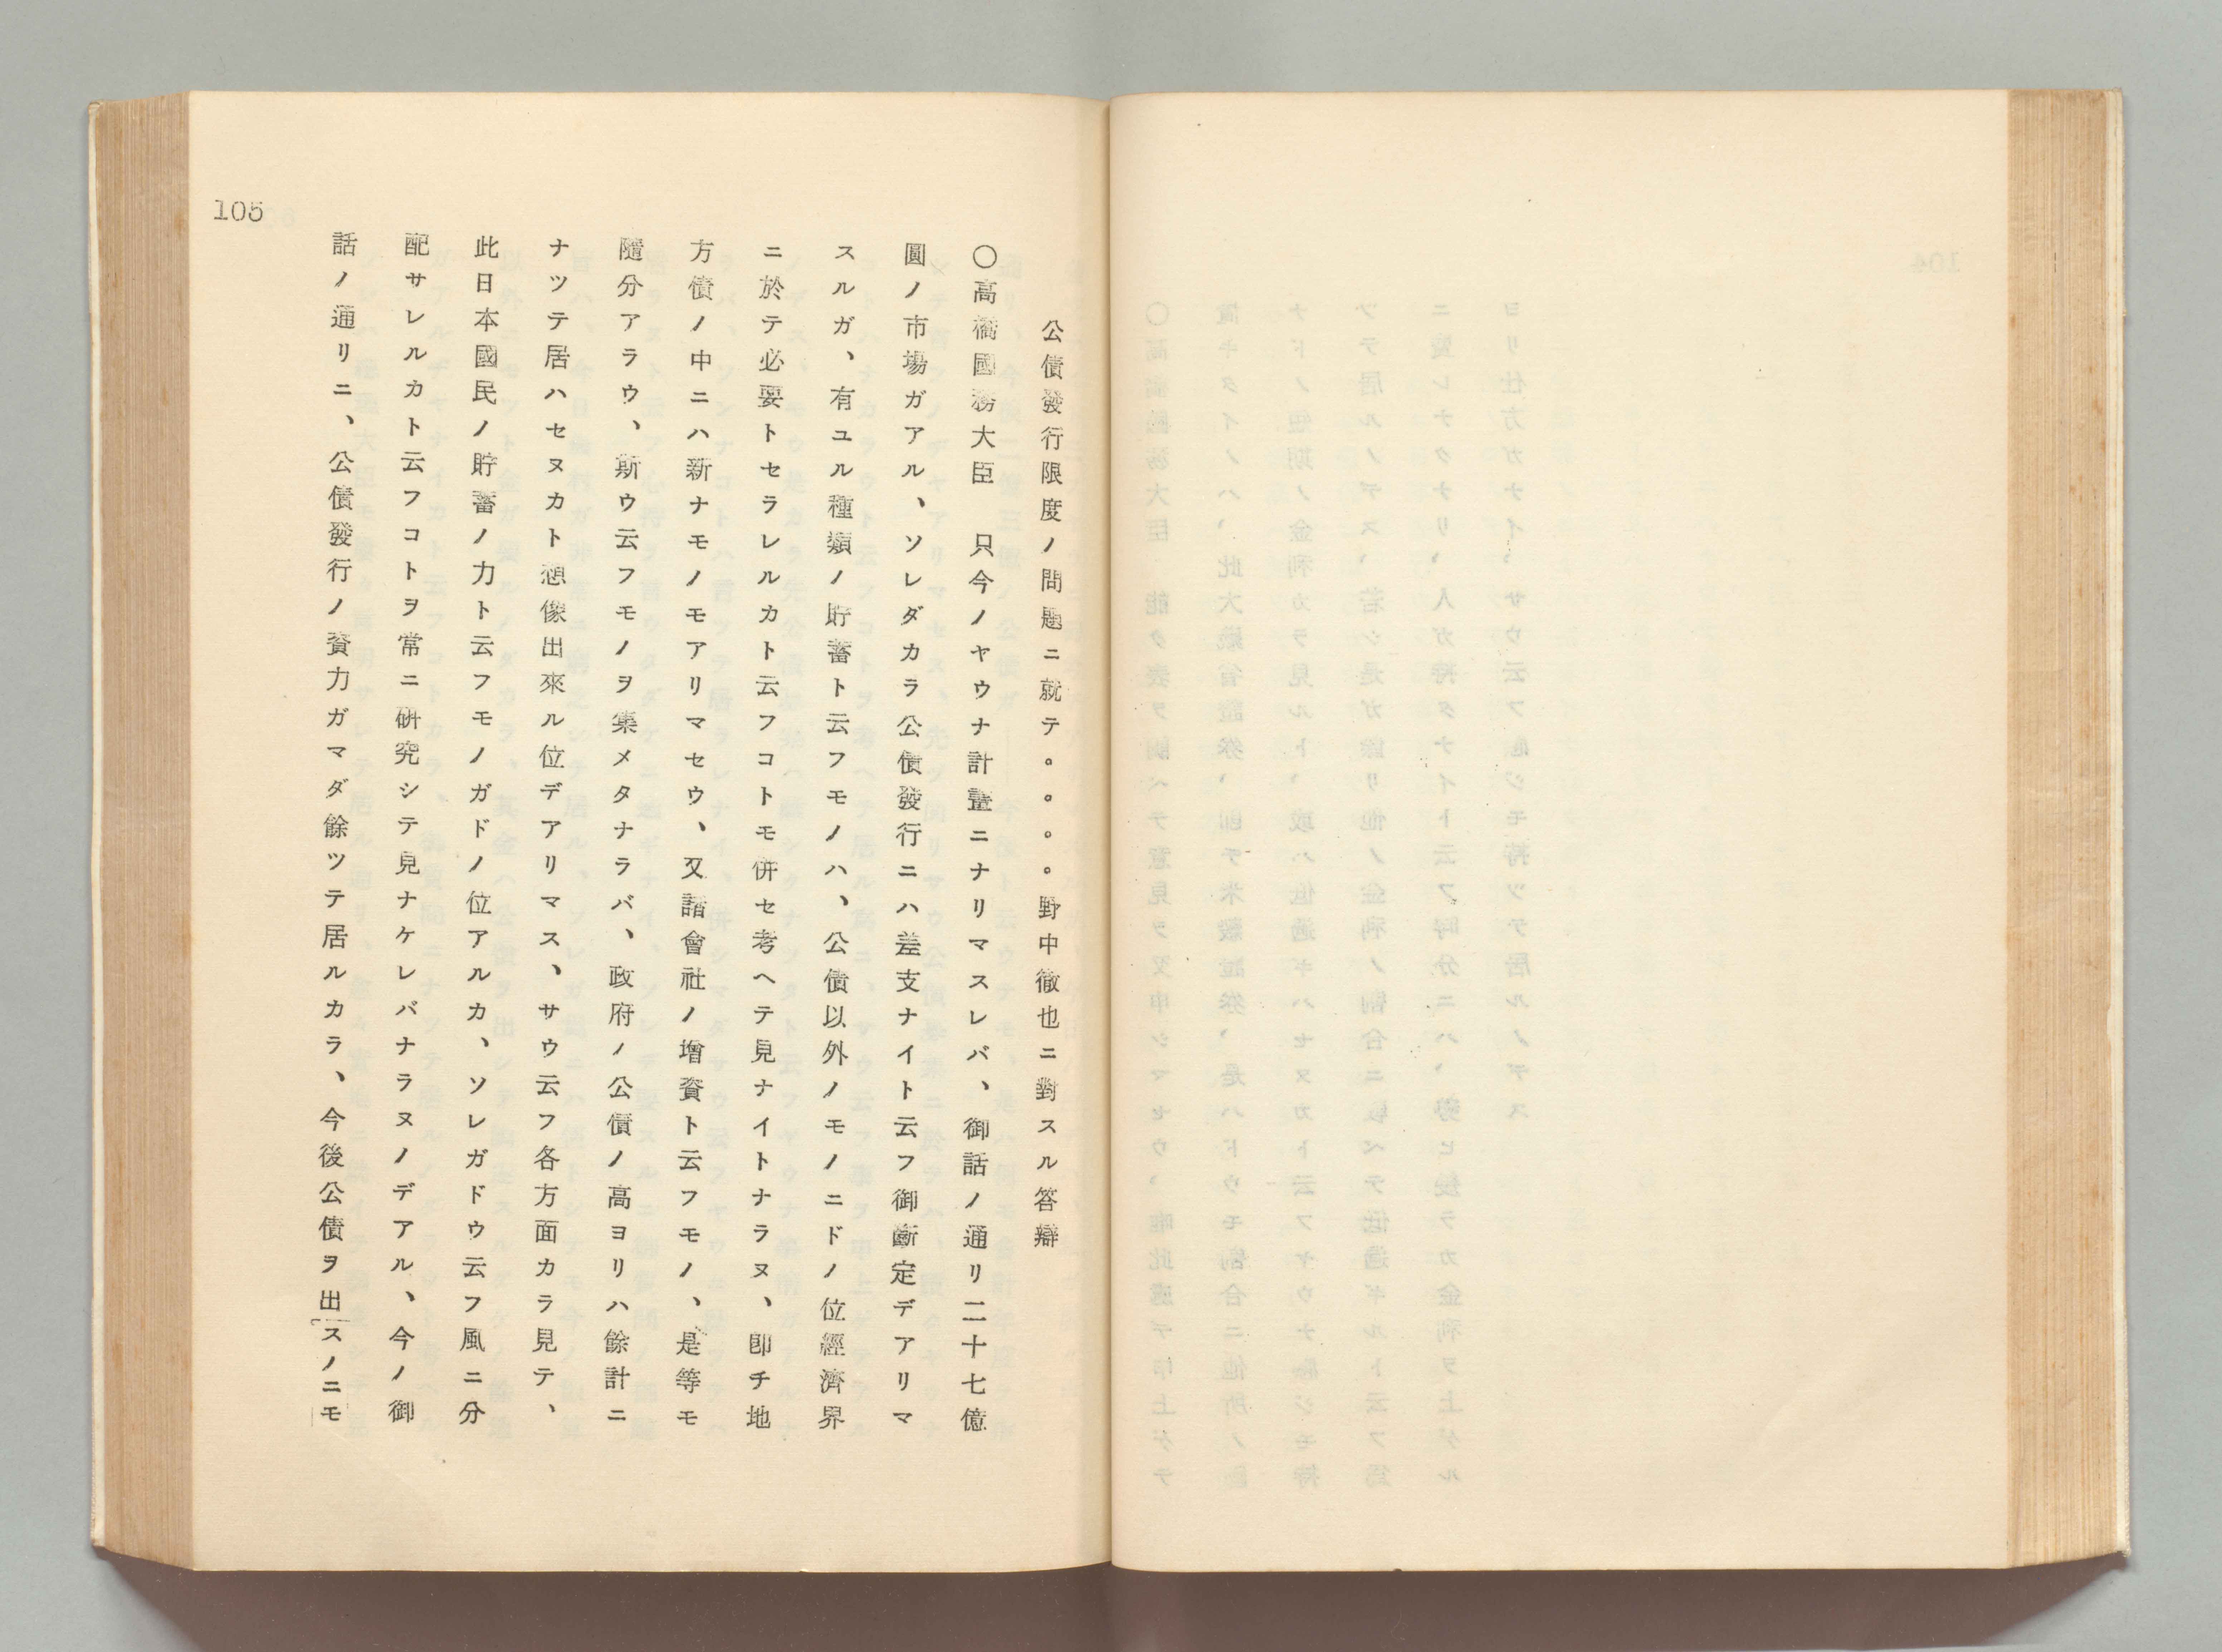 公債發行限度ノ問題ニ就テ。。。。野中徹也ニ對スル答辯
〇高橋國務大臣　只今ノヤウナ計畫ニナリマスレバ、御話ノ通リ二十七億
圓ノ市場ガアル、ソレダカラ公債發行ニハ差支ナイト云フ御斷定デアリマ
スルガ、有ユル種類ノ貯蓄ト云フモノハ、公債以外ノモノニドノ位經濟界
ニ於テ必要トセラレルカト云フコトモ併セ考ヘテ見ナイトナラヌ、卽チ地
方債ノ中ニハ新ナモノモアリマセウ、又諸會社ノ增資ト云フモノ、是等モ
隨分アラウ、斯ウ云フモノヲ集メタナラバ、政府ノ公債ノ高ヨリハ餘計ニ
ナツテ居ハセヌカト想像出來ル位デアリマス、サウ云フ各方面カラ見テ、
此日本國民ノ貯蓄ノ力ト云フモノガドノ位アルカ、ソレガドウ云フ風ニ分
配サレルカト云フコトヲ常ニ硏究シテ見ナケレバナラヌノデアル、今ノ御
話ノ通リニ、公債發行ノ資力ガマダ餘ツテ居ルカラ、今後公債ヲ出スノニモ
105